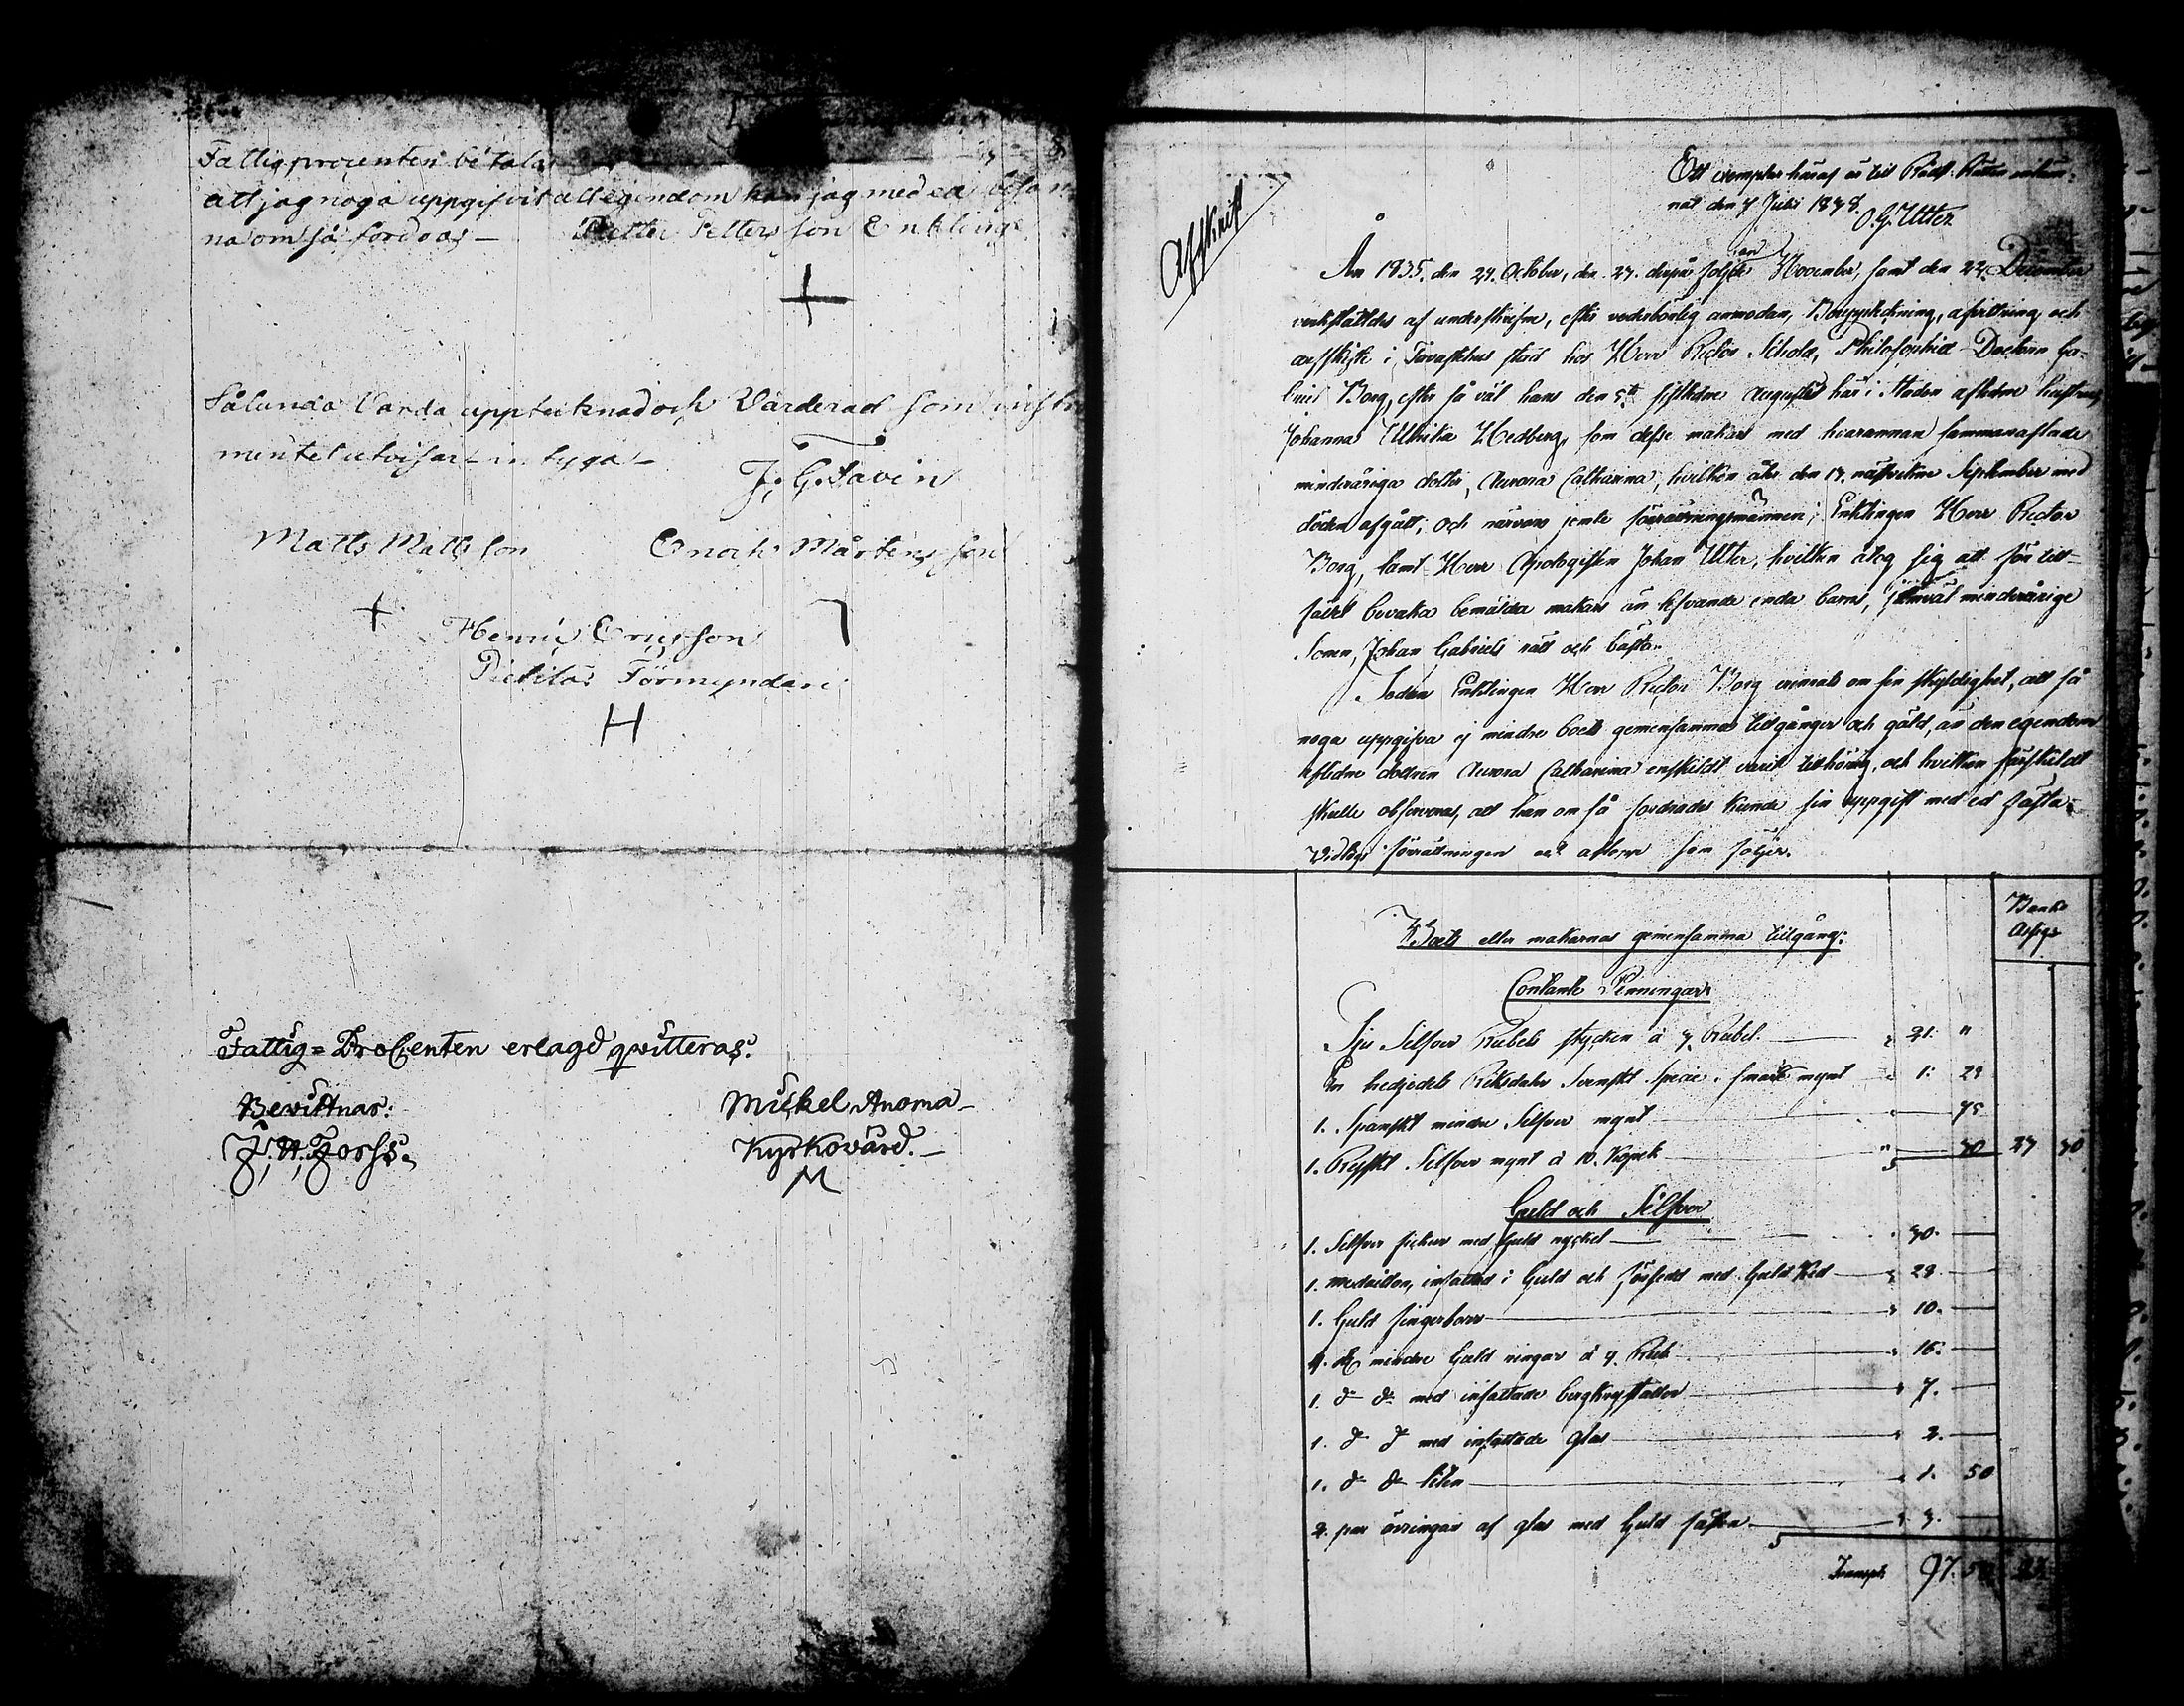 Fattigprocenten betalas
att jag noga uppgifvit all egendom kan jag med ed besan
na om så fordras – Petter Pettersson Enkling
Sålunda Varda upptecknad och Värderad som instru
mentet utvisar – intyga –
J. G. Favén
Matts Mattsson Enoch Mårtensson
Henric Ericsson
Förmyndare
H
Fattig=ProCenten erlagd qvitteras.
Bevittnar: Mickel Anoma –
J. A. Forss. Kyrkovärd. –
M
Afskrift
Ett exemplar häraf är till Rådst. Rätten inläm-
nat den 7 Juli 1838.
O. G. Utter
År 1835. den 27. October, den 27. derpå följde November, samt den 22. December
verkställdes af underskrifne, efter vederbörlig anmodan, Bouppteckning, afvittring och
arfskifte i Tavastehus stad hos Herr Rector Scholæ, Philosophiæ Doctorn Ga-
briel Borg, efter så väl hans den 5te sistledne Augusti här i staden afledne hustru,
Johanna Ulrika Hedberg, som desse makars med hvarannan sammanaflade
minderåriga dotter, Aurora Catharina, hvilken åter den 17. nästvekne September med
döden afgått; och närvaro jemte förrättningsmännen; Enklingen Herr Rector
Borg, samt Herr Apologisten Johan Utter, hvilken åtog sig att för till-
fället bevaka bemälda makars än lefvande enda barns, jemväl minderårige
Sonen, Johan Gabriels rätt och bästa.
Sedan Enklingen Herr Rector Borg erinrats om sin skyldighet, att så
noga uppgifva ej mindre boets gemensamma tillgångar och gäld, än den egendom
afledne dottren Aurora Catharina enskildt varit tillhörig, och hvilken särskildt
skulle observeras, att han om så fordrades kunde sin uppgift med ed fästa;
Vidtogs förrättningen och aflopp som följer.
Banko
Assign
Boets eller makarnas gemensamma tillgång:
Contante Penningar
Sju Silfver Rubels stycken à 3. Rubel. 21. "
En tredjedels Riksdaler Svenskt Specie. smått mynt 1: 28
1. Spanskt mindre Silfver mynt 75
1. Ryskt Silfver mynt à 10. Kopek 30 23 30
Guld och Silfver
1. Silfver fickur med Guld nyckel 30. —
1. medaillon, infattad i Guld och försedd med Guld Ked 28 —
1. Guld fingerborr 10. —
4. st mindre Guld ringar à 4. Rub: 16. —
1. d:o d:o med infattade bergkrystaller 7. —
1. d:o d:o med infattade glas 2. —
1. d:o d:o liten 1. 50
2. par örringar af glas med Guld fästen 3. —
Transp: 97. 50 23